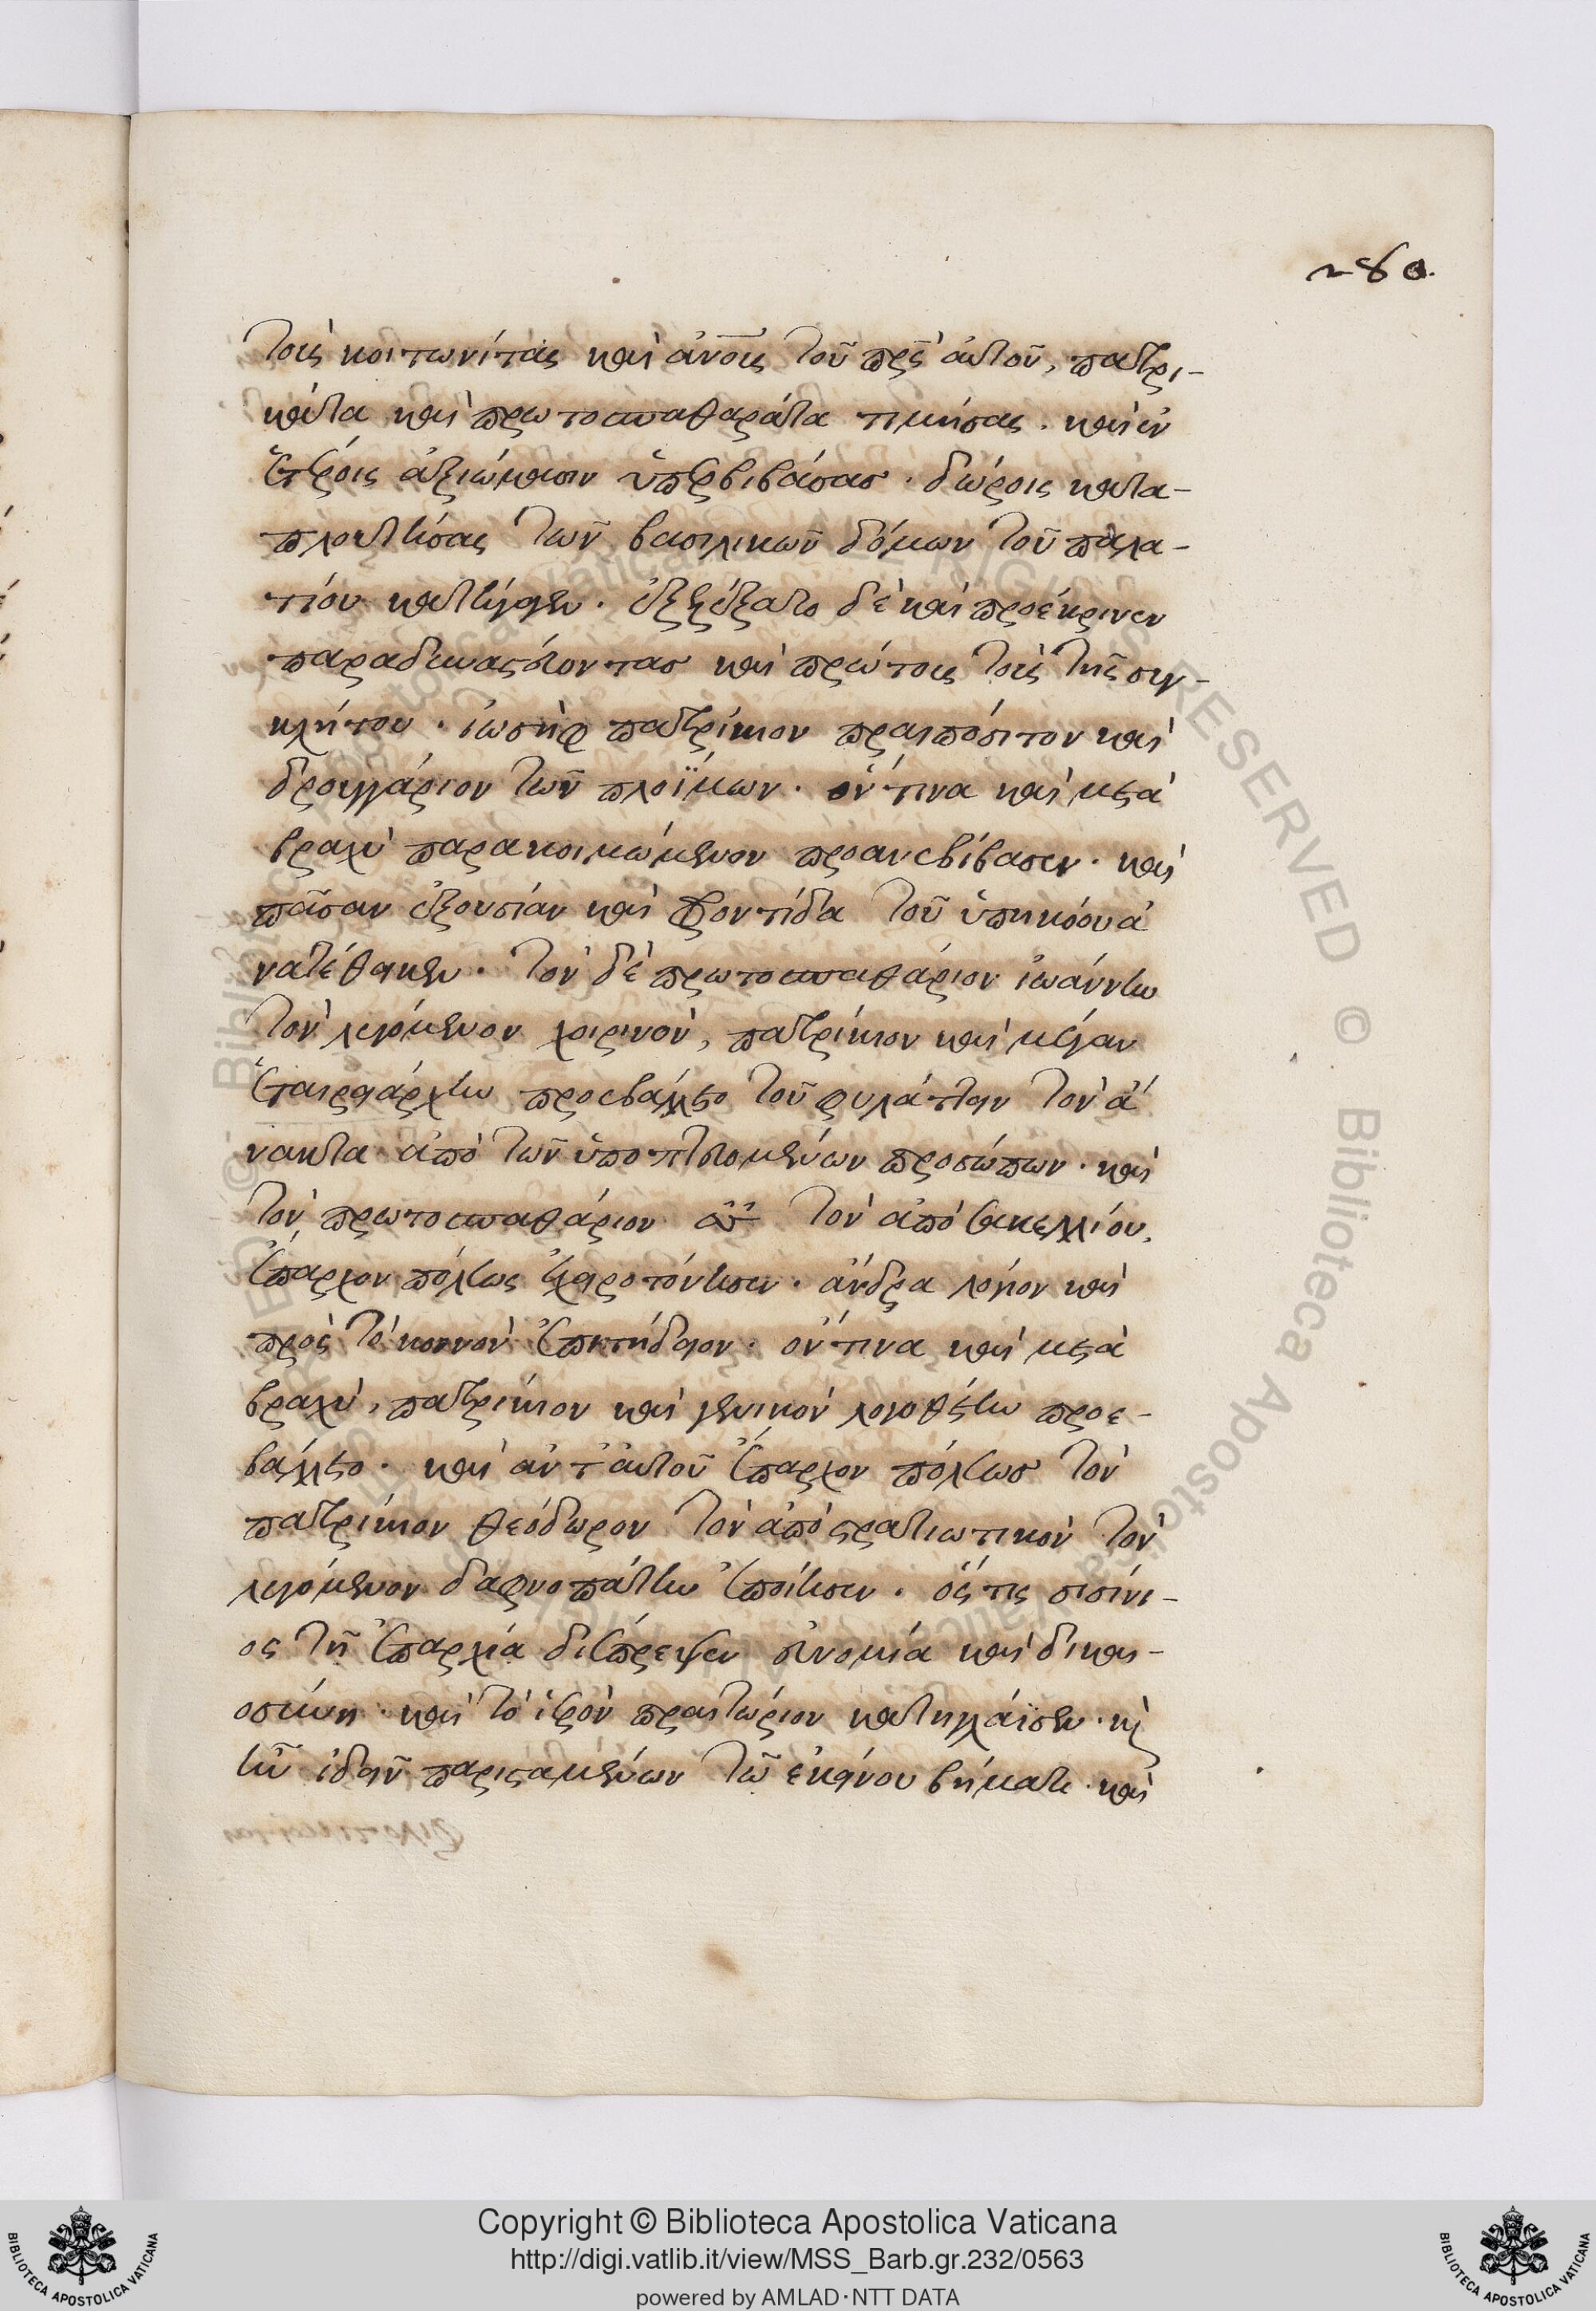 280.
τοὺς κοιτωνίτας καὶ ἀνοὺς τοῦ πρς αὐτοῦ, πατρι-
κάτα καὶ πρωτοσπαθαράτα τιμήσας. καὶ ἐν
ἑτέροις ἀξιώμασιν ὑπερβιβάσας. δώροις κατα-
πλουτίσας τῶν βασιλικῶν δόμων τοῦ παλα-
τίου κατήγαγεν. ἐξελέξατο δὲ καὶ προέκρινεν
παραδυναστεύοντας καὶ πρώτους τοὺς τῆς συγ-
κλήτου. ἰωσὴφ πατρίκιον πραιπόσιτον καὶ
δρουγγάριον τῶν πλοΐμων. ὅν τινα καὶ μετὰ
βραχὺ παρακοιμώμενον προανεβίβασεν. καὶ
πᾶσαν ἐξουσίαν καὶ φροντίδα τοῦ ὑπηκόου ἀ
νατέθηκεν. τὸν δὲ πρωτοσπαθάριον ἰωάννην
τὸν λεγόμενον χοιρινὸν, πατρίκιον καὶ μέγαν
ἑταιρειάρχην προεβάλλετο τοῦ φυλάττειν τὸν ἄ
νακτα ἀπὸ τῶν ὑποπτευομένων προσώπων. καὶ
τὸν πρωτοσπαθάριον τὸν ἀπὸ σακελλίου,
ἔπαρχον πόλεως ἐχειροτόνησεν. ἄνδρα λόγιον καὶ
πρὸς τὸ κοινὸν ἐπιτήδειον. ὅν τινα καὶ μετὰ
βραχὺ, πατρίκιον καὶ γενικὸν λογοθέτην προε-
βάλλετο. καὶ ἀντ' αὐτοῦ ἔπαρχον πόλεως τὸν
πατρίκιον θεόδωρον τὸν ἀπὸ στρατιωτικὸν τὸν
λεγόμενον δαφνοπάτην ἐποίησεν. ὅς τις σισίνι-
ος τῇ ἐπαρχία διέπρεψεν εὐνομία καὶ δικαι-
οσύνη. καὶ τὸ ἱερὸν πραιτώριον κατηγλάϊσεν. κὶ
ἦν ἰδεῖν παρισταμένων τῶ ἐκείνου βήματι καὶ
Copyright © Biblioteca Apostolica Vaticana
http://digi.vatlib.it/view/MSS_Barb.gr.232/0563
powered by AMLAD·NTT DATA